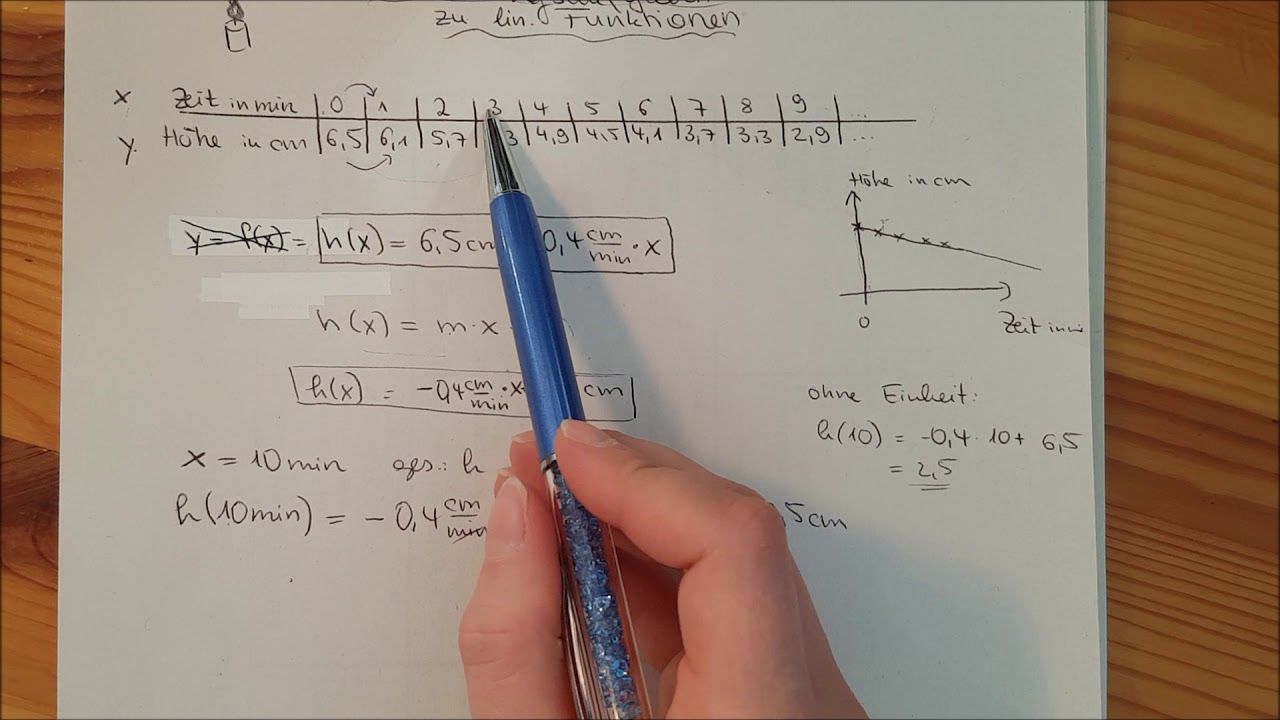 zu lin. Funktionen
x Zeit in min 0 1 2 3 4 5 6 7 8 9 ...
y Höhe in cm 6,5 6,1 5,7 3 4,9 4,5 4,1 3,7 3,3 2,9 ...
Höhe in cm
y = f(x) = h(x) = 6,5 cm 0,4 cm/min · x
0
Zeit in
h(x) = m · x
h(x) = -0,4 cm/min · x cm
ohne Einheit:
h(10) = -0,4 · 10 + 6,5
= 2,5
x = 10 min ges.: h
h(10 min) = - 0,4 cm/min ,5 cm